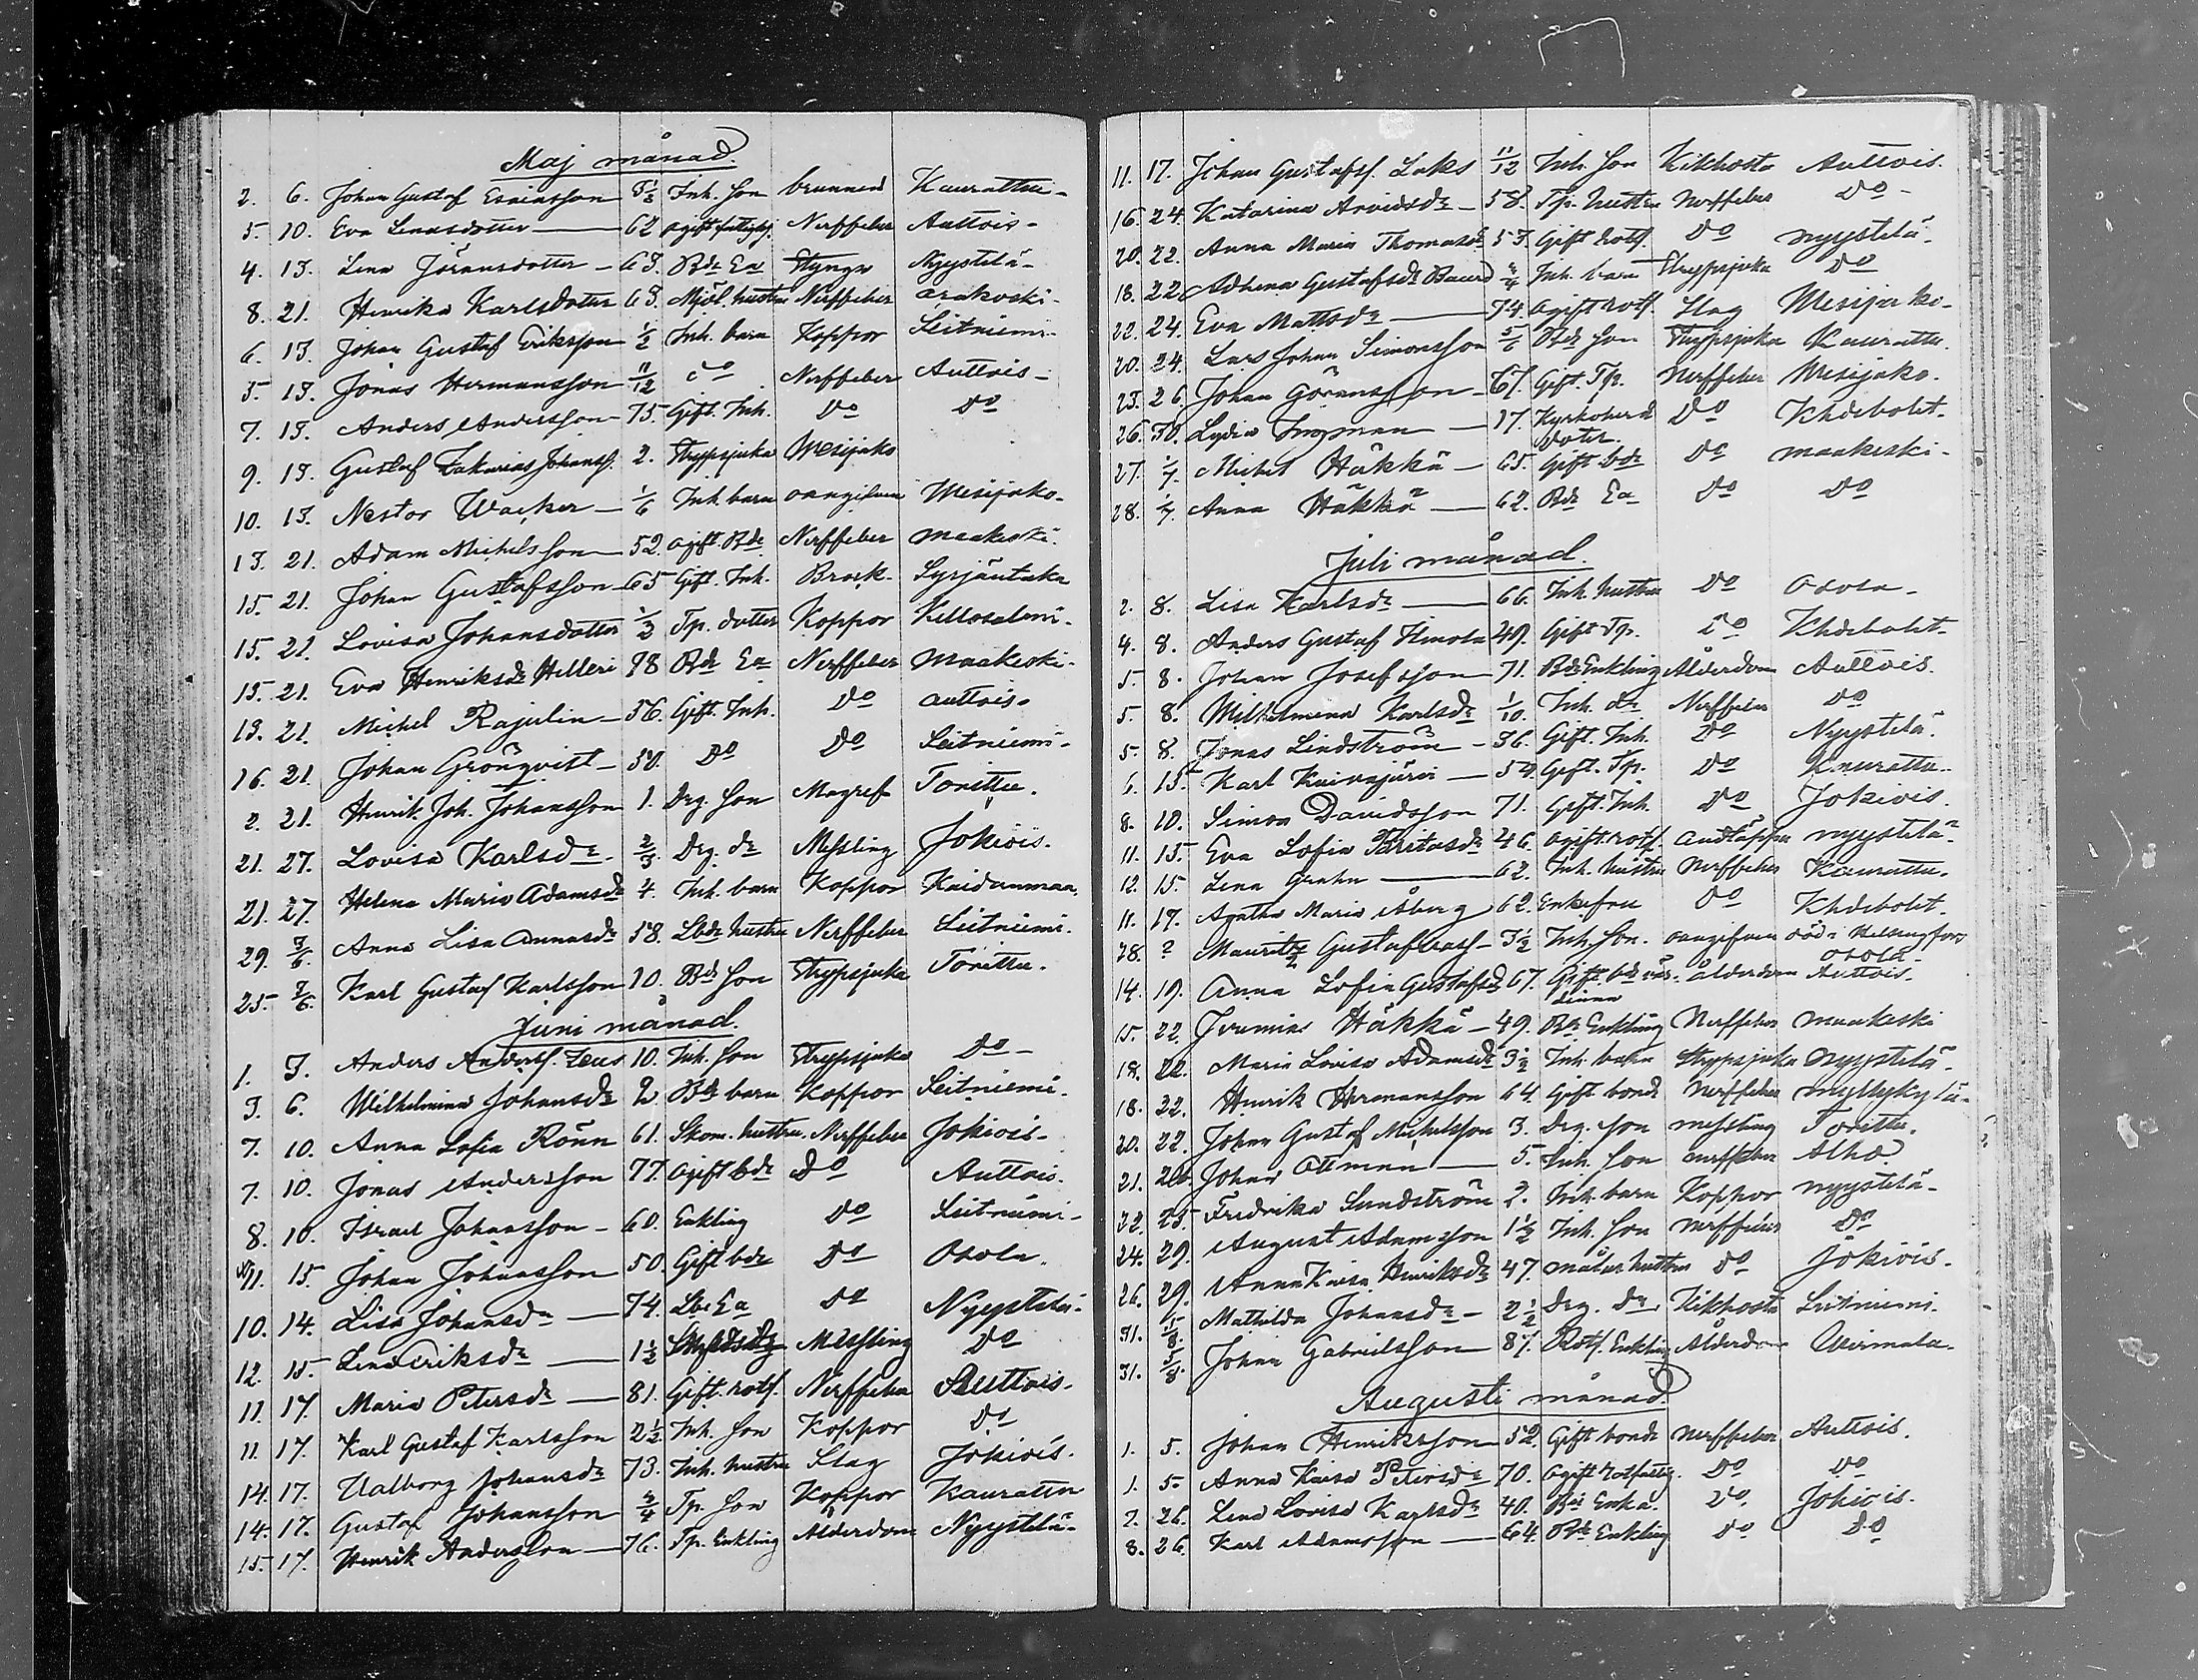 Maj månad.
2. 6. Johan Gustaf Esaiasson 5½ Inh. son brunnen Kaurattu-
5. 10. Eva Lenasdotter — 62 ogift fattighj. Nerffeber Auttois-
4. 13. Lena Jöransdotter - 63. Bde Ea Styngn Nyystelä-
8. 21. Henrika Karlsdotter 63. Mjöl. hustru Nerffeber Arakoski-
6. 13. Johan Gustaf Eriksson ½ Inh. barn Koppor Seitniemi-
5. 13. Jonas Hermansson 11/12 do Nerffeber Auttois-
7. 13. Anders Andersson 75. Gift. Inh. Do Do
9. 13. Gustaf Zakarias Johanss. 2. Strypsjuka Mesijako
10. 13. Nestor Wacker — 1/6 Inh. barn oangifven Mesijako-
13. 21. Adam Michelsson 52. ogift. Bde Nerffeber Maakeski.
15. 21. Johan Gustafsson 65 Gift. Inh. Brock. Syrjäntaka
15. 21. Lovisa Johansdotter ½ Tp. dotter Koppor Kellosalmi-
15. 21. Eva Henriksdr Helleri 78 Bde Ea Nerffeber Maakeski-
13. 21. Michel Rajulin — 56. Gift. Inh. Do Auttois-
16. 21. Johan Grönqvist — 50. Do Do Seitniemi-
2. 21. Henrik Joh. Johansson 1. Drg. son Magref Torittu.
21. 27. Lovisa Karlsdr 2/3. Drg. dr Messling Jokiois.
21. 27. Helena Maria Adamsdr 4. Inh. barn Koppor Kaidanmaa.
29. 7/6. Anna Lisa Annasdr 58. Lbde hustru Nerffeber Seitniemi.
25. 7/6. Karl Gustaf Karlsson 10. Bde son Strypsjuka Torittu.
Juni månad.
1. 3. Anders Anderss. Zeus 10. Inh. son Strypsjuka Do -
3. 6. Wilhelmina Johansdr 2 Bde barn Koppor Seitniemi.
7. 10. Anna Sofia Rönn 61. Skom. hustru. Nerffeber Jokiois-
7. 10. Jonas Andersson 77. ogift bde Do Auttois.
8. 10. Israel Johansson - 60. Enkling Do Seitniemi-
11. 15. Johan Johansson 50. Gift bde Do Osola.
10. 14. Lisa Johansdr — 74. Lbe Ea Do Nyystelä-
12. 15. Lena Eriksdr — 1½ Messling Do
11. 17. Maria Petersdr — 81. Gift. rotf. Nerffeber Auttois-
11. 17. Karl Gustaf Karlsson 2½ Inh. son Koppor Do
14. 17. Walborg Johansdr 73. Inh. hustru Slag Jokiois.
14. 17. Gustaf Johansson ¾ Tp. son Koppor Kaurattu
15. 17. Henrik Andersson — 76. Tp. Enkling Ålderdom Nyystelä-
11. 17. Johan Gustafss. Laks 11/12 Inh. son Kikhosta Auttois.
16. 24. Katarina Arvidsdr — 58. Tp. hustru Nerffeber Do -
20. 22. Anna Maria Thomasdr 53. Gift rotf. Do Nyystelä-
18. 22. Gustafsdr ¾ Inh. barn Strypsjuka Do
22. 24. Eva Mattsdr — 74. ogift rotf. Slag Mesijako-
20. 24. Lars Johan Simonsson 5/6 Bde son Strypsjuka Kaurattu.
23. 26. Johan Göransson — 67. Gift. Tp. Nerffeber Mesijako.
26. 30. Lydia Ingman — 17. Kyrkoherd Do Khdebolet.
doter.
27. 1/7. Michel Häkkä — 65. Gift bde Do Maakeski-
28. 1/7. Anna Häkkä — 62. Bde Ea Do Do
Juli månad.
2. 8. Lisa Karlsdr — 66. Inh. hustru Do Osola-
4. 8. Anders Gustaf Himola 49. Gift Tp. Do Khdebolet-
5. 8. Johan Josefsson 71. Bde Enkling Ålderdom Auttois.
5. 8. Wilhelmina Karlsdr 1/10. Inh. dr Nerffeber Do
5. 8. Jonas Lindström - 36. Gift. Inh. Do Nyystelä.
6. 15. Karl Kaivajärvi — 54. Gift. Tp. Do Kaurattu.
8. 10. Simon Davidsson 71. Gift. Inh. Do Jokiois.
11. 15. Eva Sofia 46. ogift. rotf. andtäppa Nyystelä-
12. 15. Lena Grahn — 62. Inh. hustru Nerffeber Kaurattu.
11. 17. Agatha Maria Åberg 62. Enkefru Do Khdebolet.
28. ? Mauritz Gustafsson 3½ Inh. son. oangifven död i Helsingfors
Osola-
14. 19. Anna Sofia Gustafsdr 67. Gift. bde vär- Ålderdom Auttois.
dinna
15. 22. Jeremias Häkkä — 49. Bde Enkling Nerffeber Maakeski
18. 22. Maria Lovisa Adamsdr 3½ Inh. barn Strypsjuka Nyystelä-
18. 22. Henrik Hermansson 64. Gift bonde Nerffeber Myllykylä-
20. 22. Johan Gustaf Michelsson 3. Drg. son Messling Torittu.
21. 26. Johan Ottman — 5. Inh. son Nerffeber Alho
22. 25. Fredrika Sundström 2. Inh. barn Koppor Nyystelä-
24. 29. August Adamsson 1½ Inh. son Nerffeber Do
26. 29. Anna Kaisa Henriksdr 47. målar hustru Do Jokiois.
31. 5/8. Mathilda Johansdr — 2½ Drg. dr Kikhosta Seitniemi.
31. 5/8. Johan Gabrielsson 87. Rotf. Enkling Ålderdom Wirmala.
Augusti månad.
1. 5. Johan Henriksson 52. Gift bonde Nerffeber Auttois.
1. 5. Anna Kaisa Petersdr 70. Ogift rotfattig. Do Do
2. 26. Lena Lovisa Karlsdr 40. Bde Enka. Do. Jokiois.
8. 26. Karl Adamsson — 64. Bde Enkling Do Do